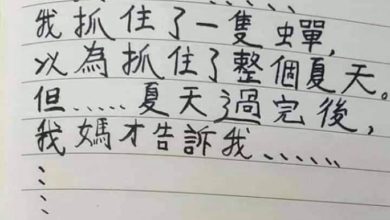 我抓住了一隻蟬,
以為抓住了整個夏天。
但……夏天過完後,
我媽才告訴我……
⋮
⋮